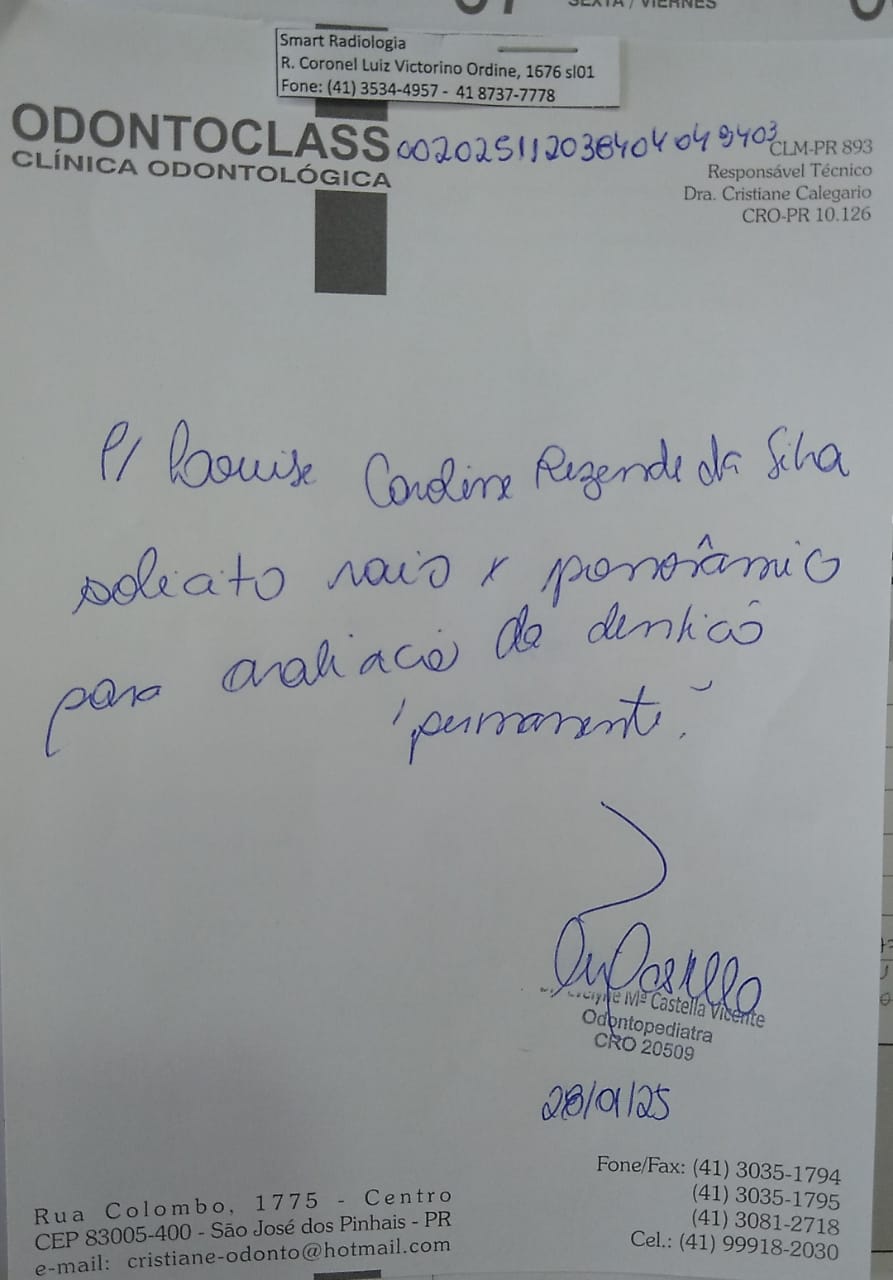 SEXTA / VIERNES
Smart Radiologia
R. Coronel Luiz Victorino Ordine, 1676 sl01
Fone: (41) 3534-4957 - 41 8737-7778
ODONTOCLASS
CLÍNICA ODONTOLÓGICA
CLM-PR 893
Responsável Técnico
Dra. Cristiane Calegario
CRO-PR 10.126
P/ Louise Caroline Rezende da Silva
solicito raio x panorâmico
para avaliação da dentição
"permanente".
Mª Castella Vicente
Odontopediatra
CRO 20509
28/01/25
Fone/Fax: (41) 3035-1794
(41) 3035-1795
(41) 3081-2718
Cel.: (41) 99918-2030
Rua Colombo, 1775 - Centro
CEP 83005-400 - São José dos Pinhais - PR
e-mail: cristiane-odonto@hotmail.com